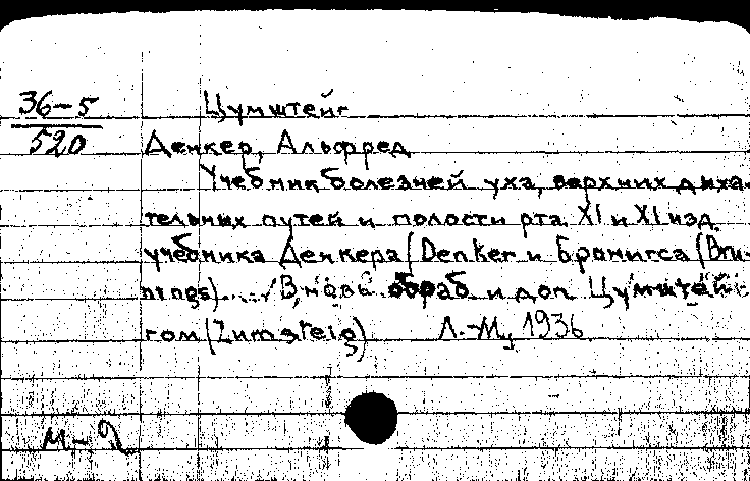 36-5
520
Цумштейг
Денкер, Альфред
Учебник болезней уха, верхних дыха-
тельных путей и полости рта. XI и XI изд.
учебника Денкера (Denker и Брюнигса (Brü-
nings)..... Вновь обраб и доп Цумштей-
гом (Zumsteig) Л.-М, 1936.
м-